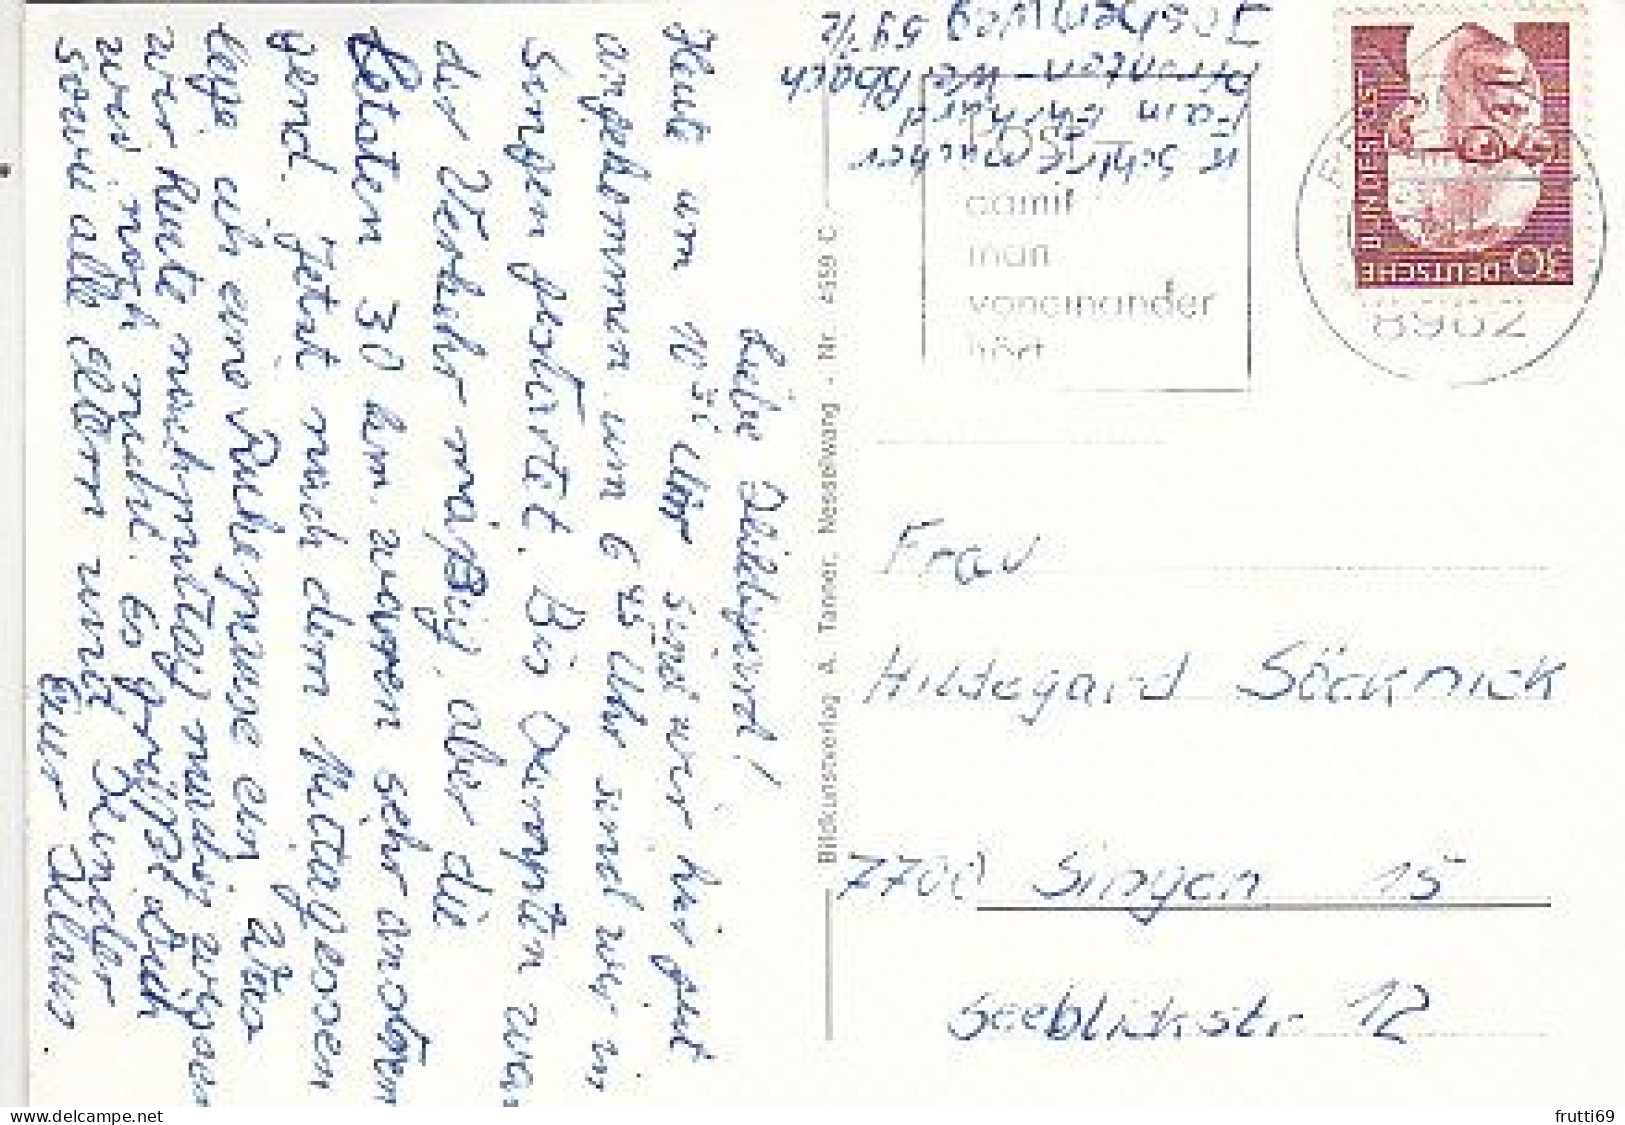 Liebe Hildegard!
Heute um 10 Uhr sind wir hier gut
angekommen. um 6 45 Uhr sind wir in
Singen gestartet. Bis Kempten war
der Verkehr mäßig, aber die
letzten 30 km. waren sehr anstren
gend. Jetzt nach dem Mittagessen
lege ich eine Ruhepause ein. Was
wir heute nachmittag machen wissen
wir noch nicht. Es grüßt Dich
sowie alle Eltern und Kinder
Eure
K Schiremacher
Fam Ehrhard
Pfronten-Weißbach
59 1/2
DEUTSCHE
BUNDESPOST
30
8962
damit
man
voneinander
hört
Bildkunstverlag A. Tanner, Nesselwang - Nr. 4559 C
Frau
Hildegard Söcknick
7700 Singen 15
Seeblickstr. 12
delcampe.net
frutti69